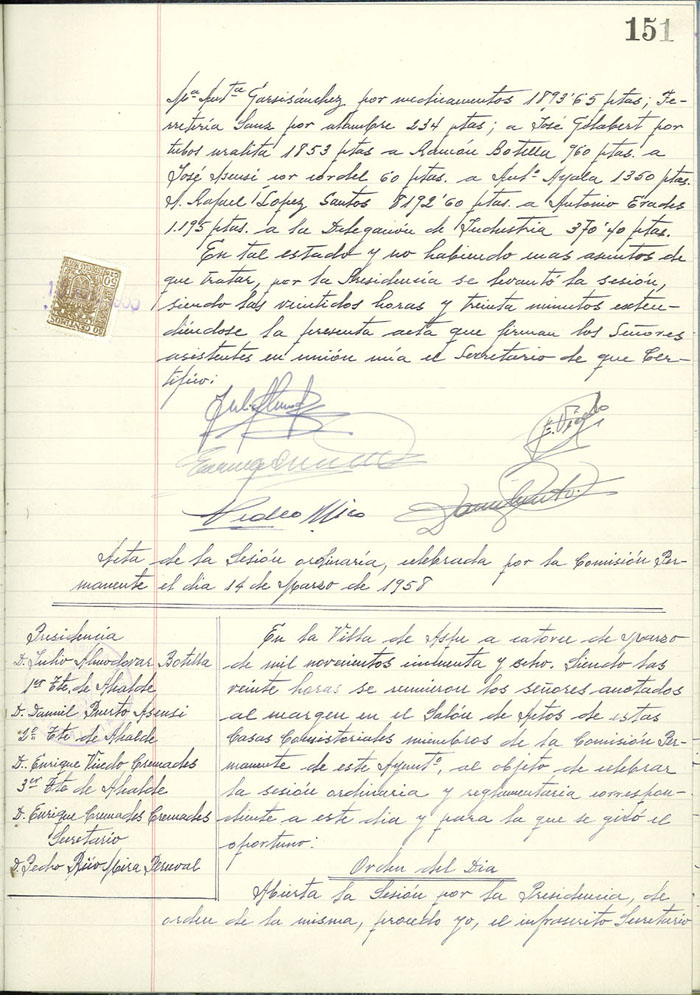 151
Mª Antª Garsisánchez por medicamentos 1893'65 ptas; Fe-
rretería Sanz por alambre 234 ptas; a José Gilabert por
tubos uralita 1853 ptas a Ramón Botella 960 ptas. a
José Asensi por cordel 60 ptas. a Antº Ayala 1350 ptas.
A. Rafael López Santos 8192'60 ptas. a Antonio Erades
1.195 ptas. a la Delegación de Industria 370'40 ptas.
En tal estado y no habiendo mas asuntos de
que tratar, por la Presidencia se levantó la sesión,
siendo las veintidos horas y treinta minutos exten-
diéndose la presente acta que firman los Señores
asistentes en unión mía el Secretario de que Cer-
tifico:
Pedro Rico
Acta de la Sesión ordinaria, celebrada por la Comisión Per-
manente el dia 14 de Marzo de 1958
Presidencia
D. Julio Almodovar Botella
1er Tte. de Alcalde
D. Daniel Puerto Asensi
2º Tte de Alcalde
D. Enrique Viñedo Cremades
3er Tte de Alcalde
D. Enrique Cremades Cremades
Secretario
D. Pedro Rico Mira Perceval
En la Villa de Aspe a catorce de Marzo
de mil novecientos cincuenta y ocho. Siendo las
veinte horas se reunieron los señores anotados
al margen en el Salón de Actos de estas
Casas Consistoriales miembros de la Comisión Per-
manente de este Ayuntº, al objeto de celebrar
la sesión ordinaria y reglamentaria correspon-
diente a este dia y para la que se giró el
oportuno:
Orden del Dia
Abierta la Sesión por la Presidencia, de
orden de la misma, procedo yo, el infrascrito Secretario